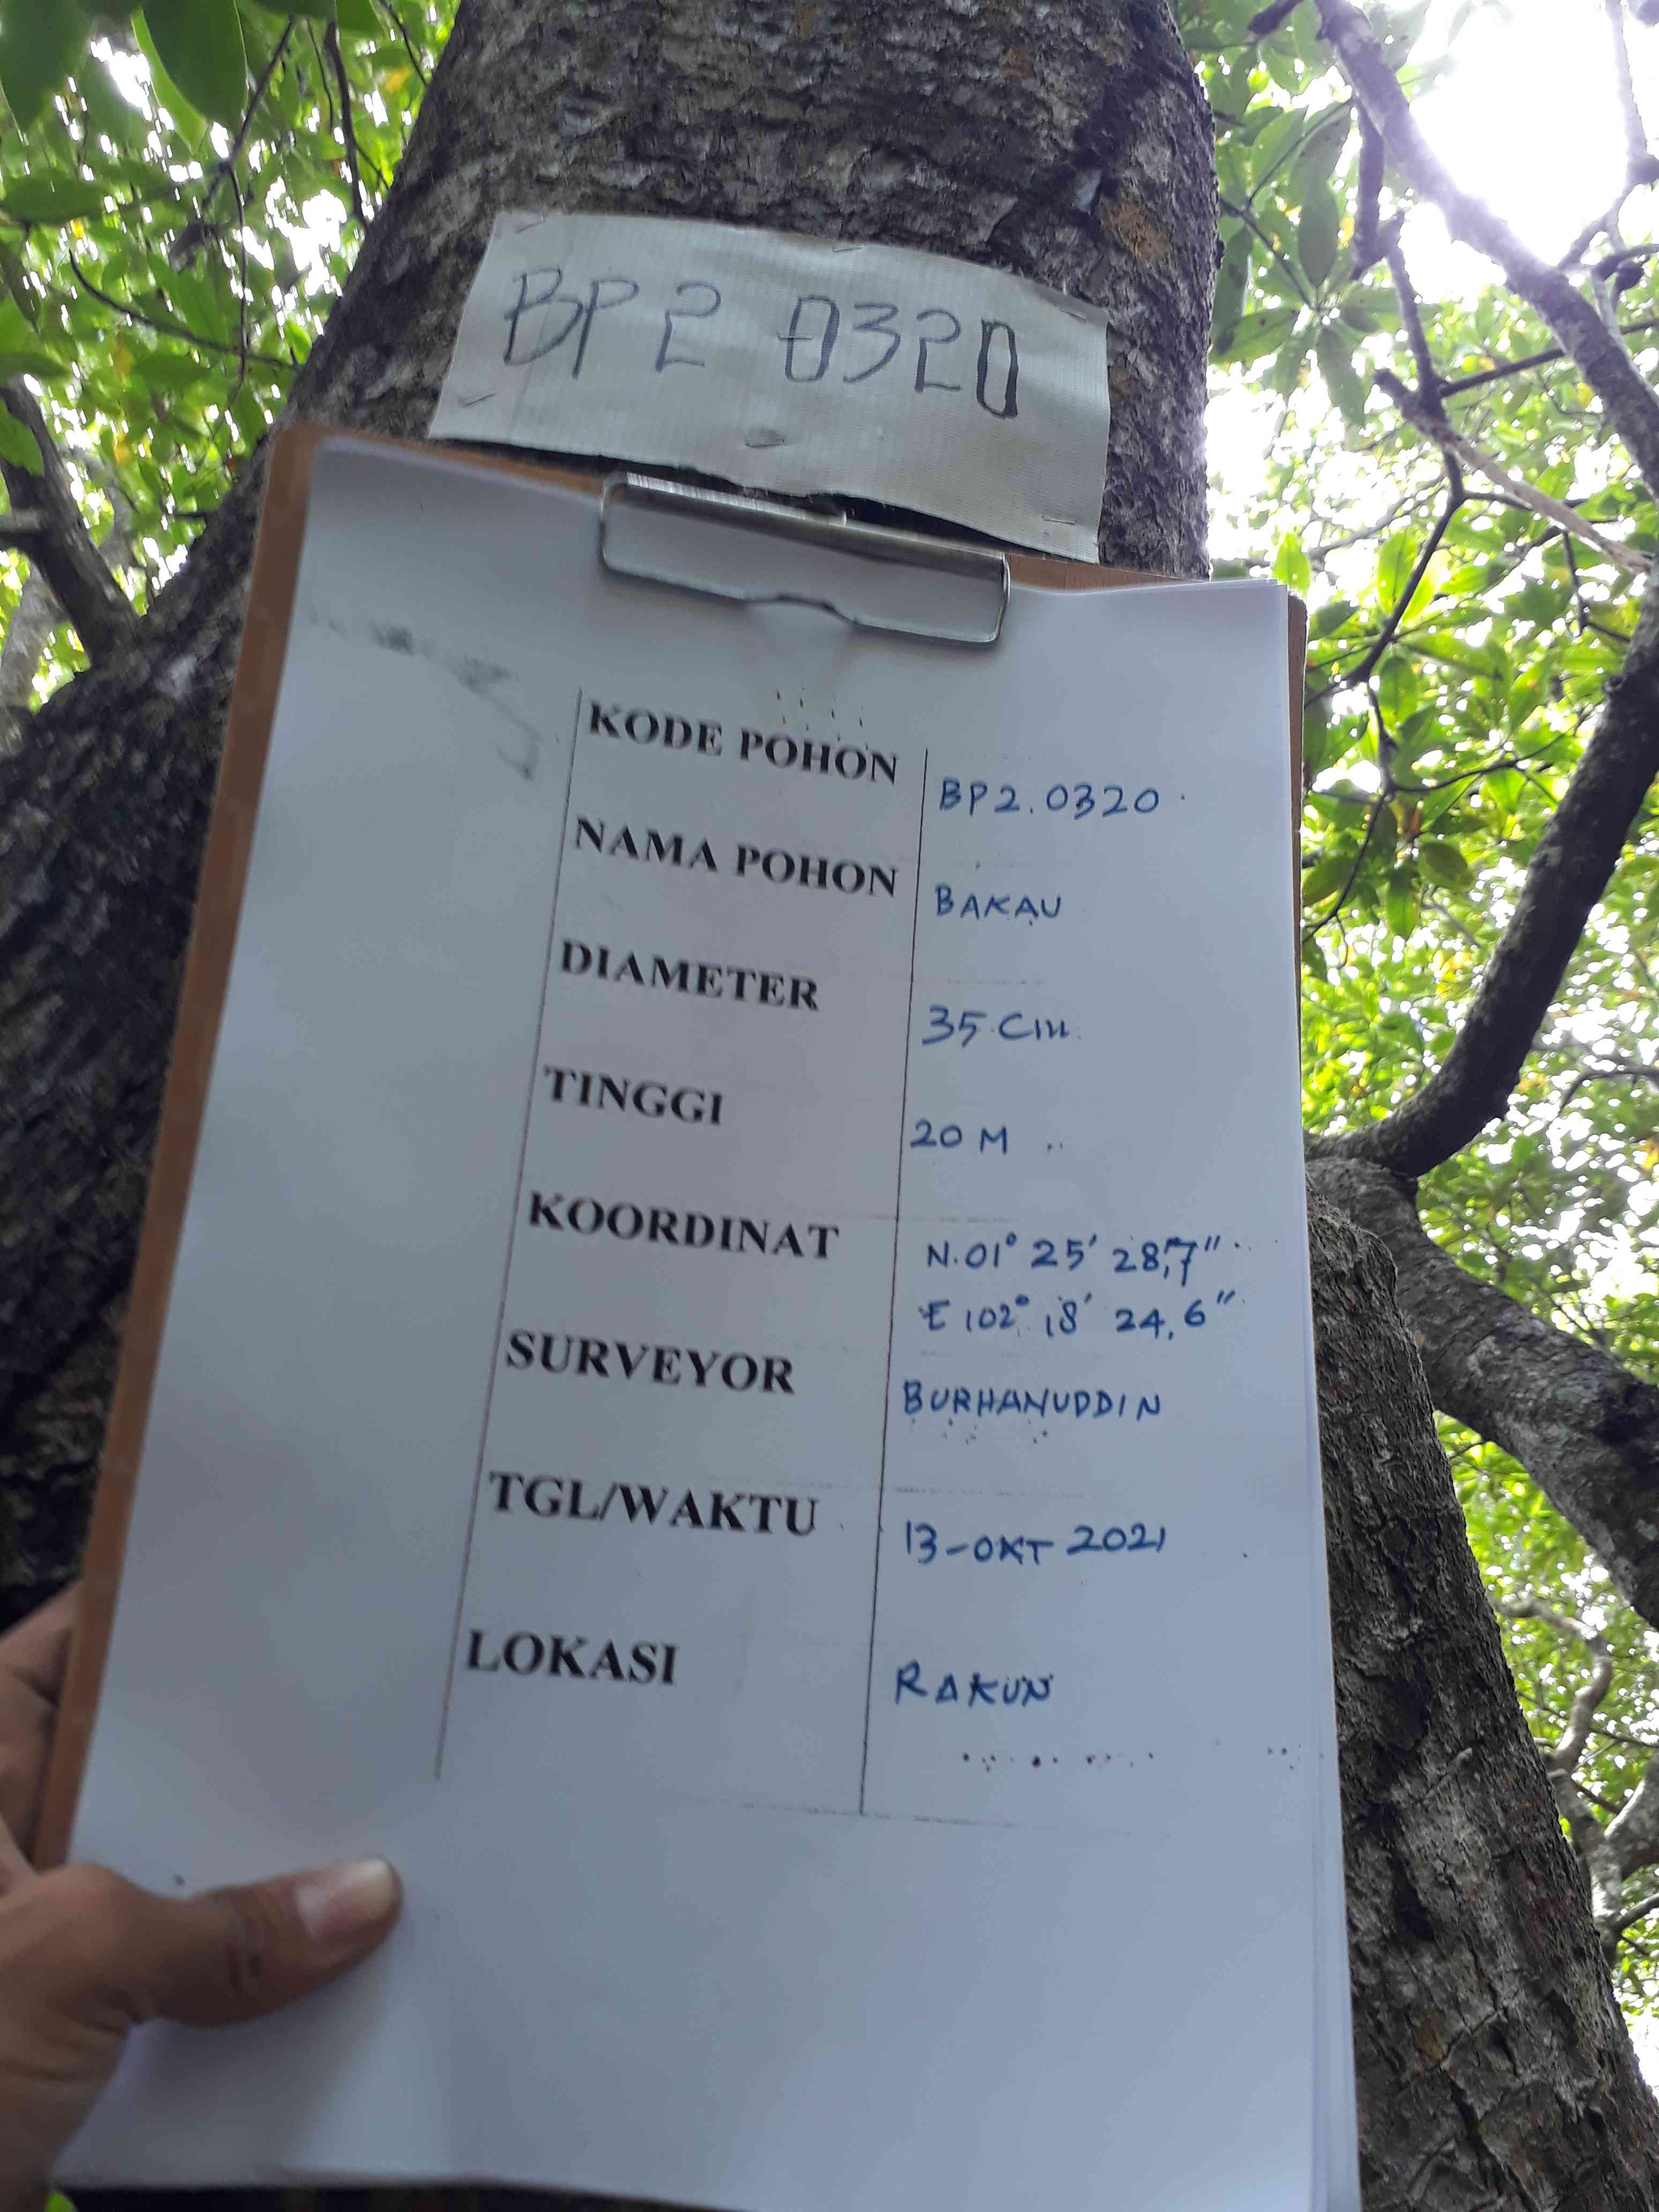 BP 2 0320
KODE POHON BP2.0320
NAMA POHON BAKAU
DIAMETER 35 cm
TINGGI 20 M
KOORDINAT N.01° 25' 28,7"
E 102° 18' 24,6"
SURVEYOR BURHANUDDIN
TGL/WAKTU 13-OKT 2021
LOKASI RAKUN